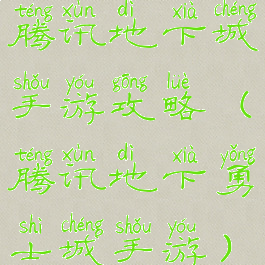 téng xùn dì xià chéng
腾讯地下城
shǒu yóu gōng lüè
手游攻略（
téng xùn dì xià yǒng
腾讯地下勇
shì chéng shǒu yóu
士城手游）